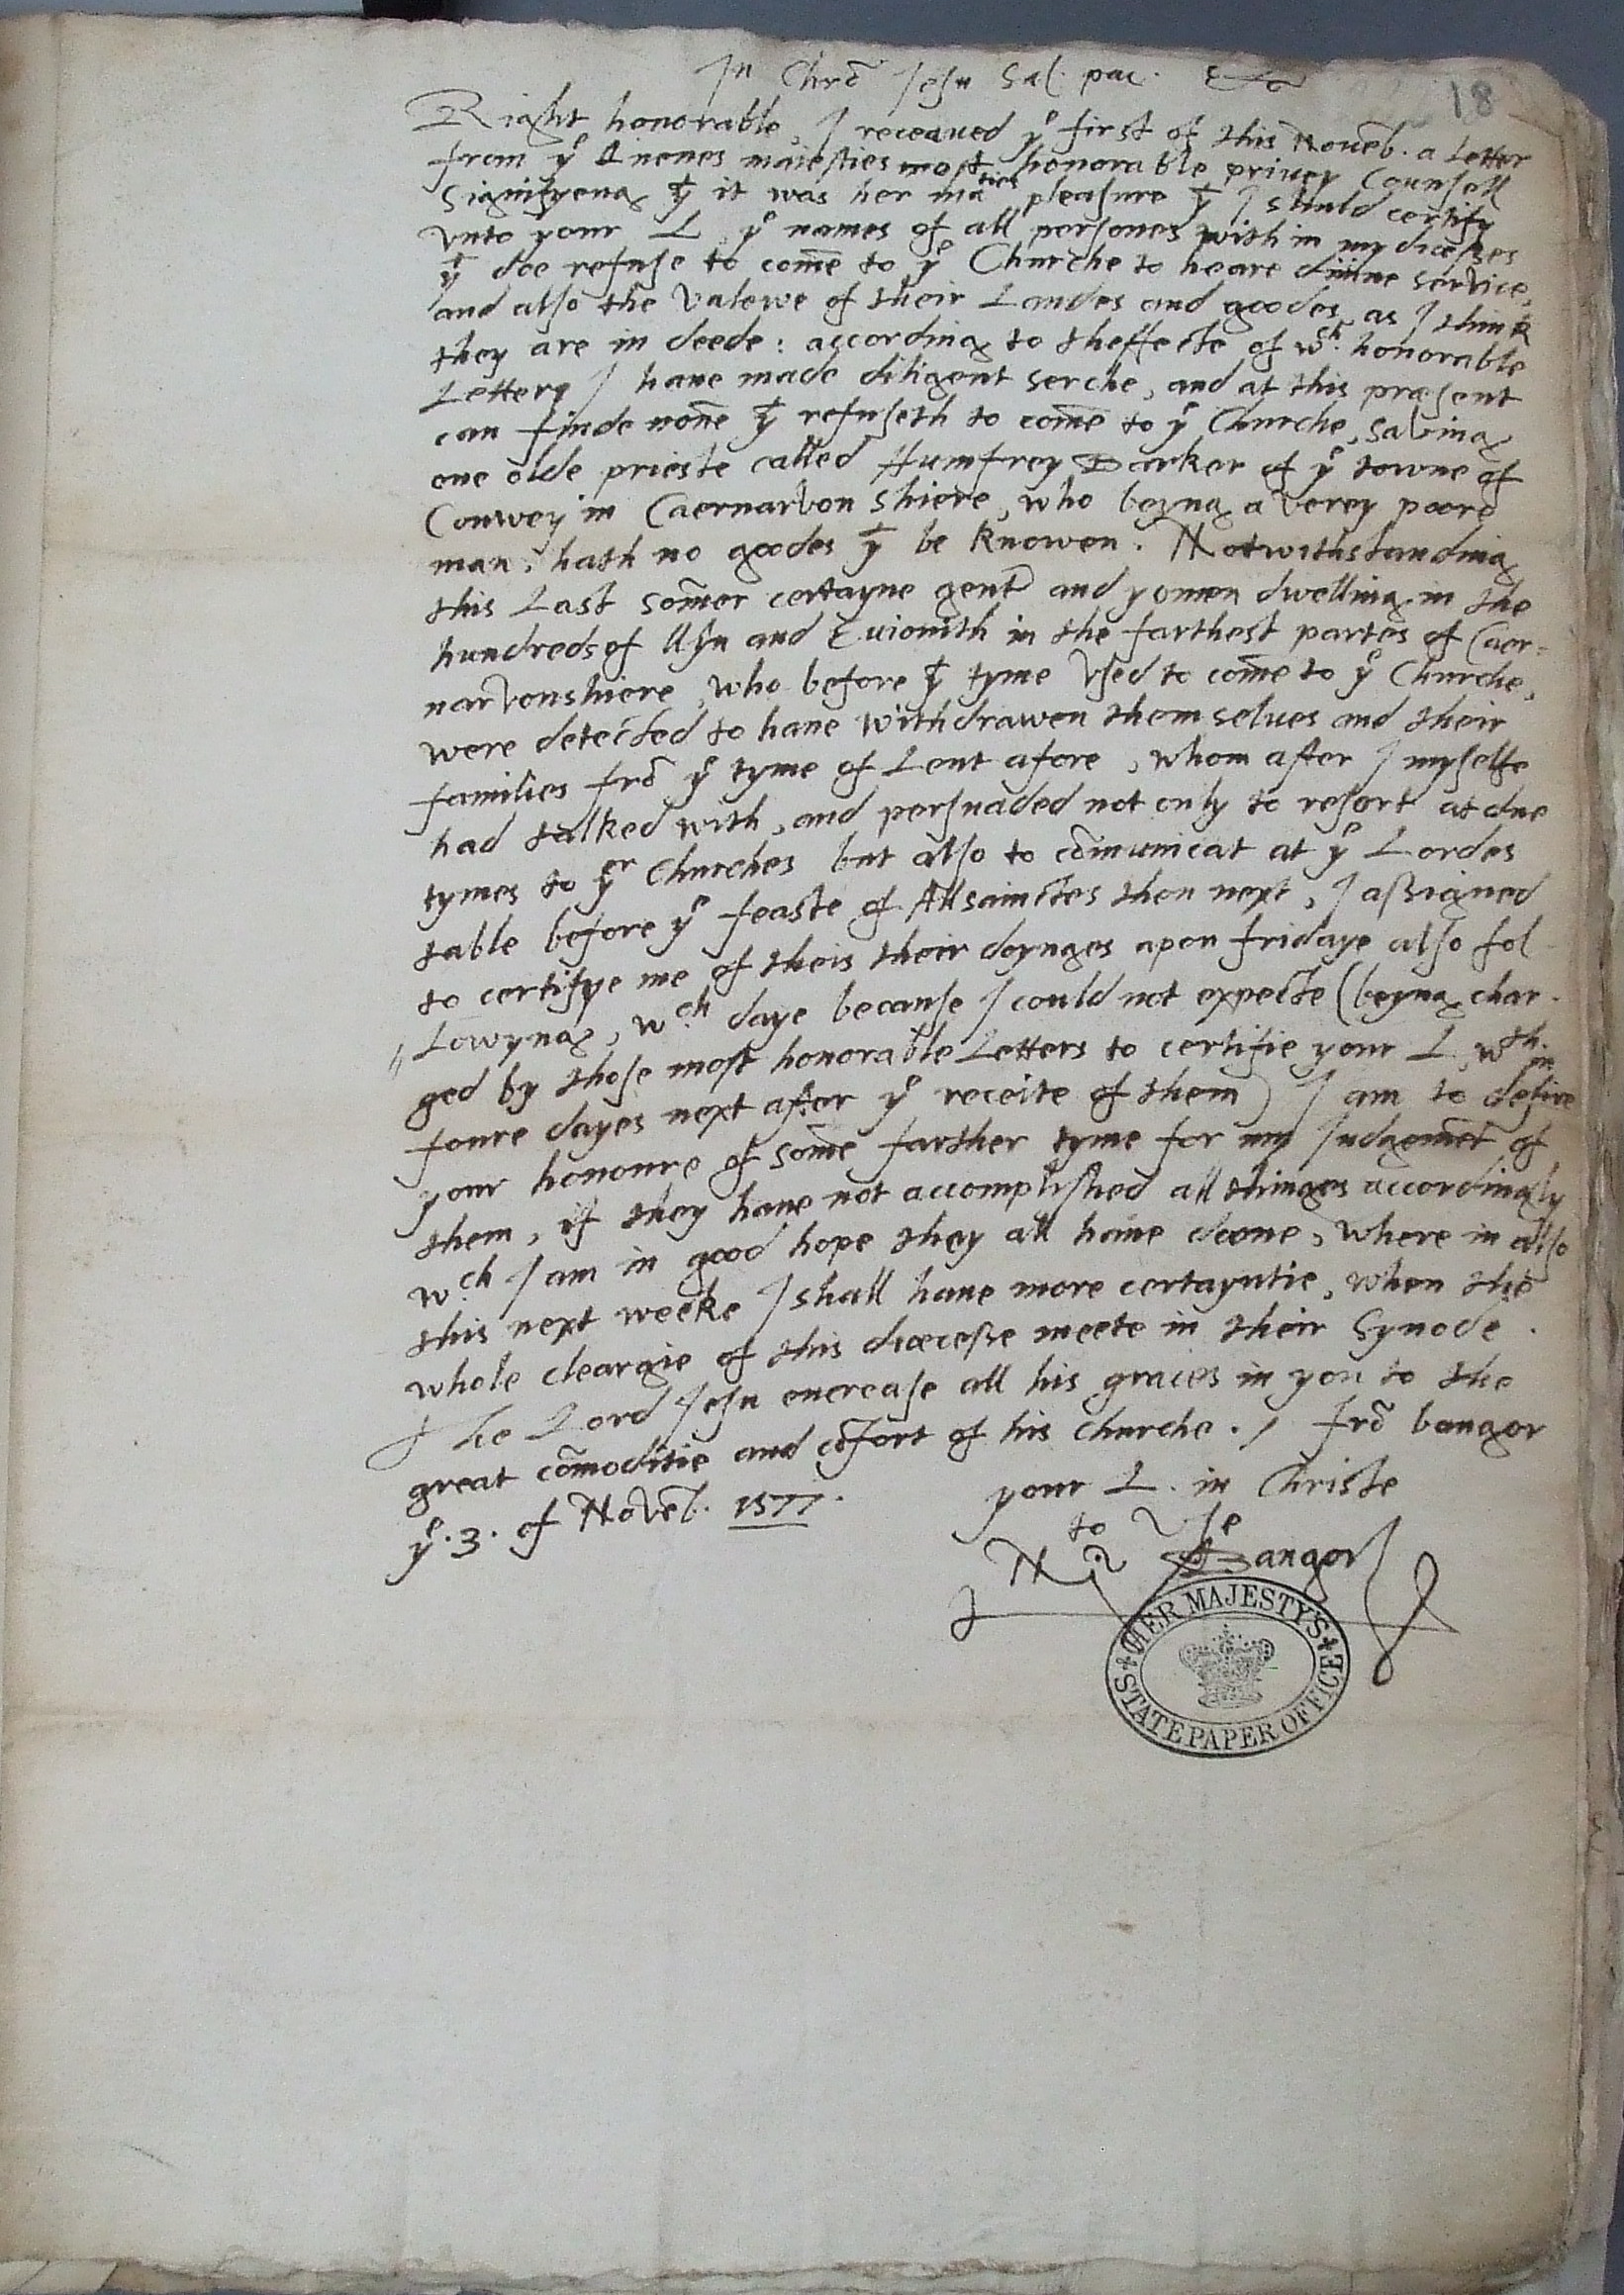 In Chrō Jesu Sal. pac. &c
18
Right honorable, I receaued yͤ first of this Nouēb. a Letter
from yͤ Quenes maiesties most honorable priuey Counsell
Signifyeng yͭ it was her maties pleasure yͭ I shuld certify
vnto your L. yͤ names of all persones within my diocesses
yͭ doe refuse to come to yͤ Churche to heare diuine service,
and also the valewe of their Landes and goodes, as I think
they are in deede: according to theffecte of wch. honorable
Letters I haue made diligent serche, and at this præsent
can finde none yͭ refuseth to come to yͤ Churche, saving
one olde prieste called Humfrey Barker of yͤ towne of
Conwey in Caernarvon shiere, who beyng a verey poore
man, hath no goodes yͭ be knowen. Notwithstanding
this Last somer certayne gent and yomen dwelling in the
hundreds of llyn and Euionith in the farthest partes of Caer=
narvonshiere, who before yͭ tyme vsed to come to yͤ Churche,
were detected to haue withdrawen themselues and their
families frō yͤ tyme of Lent afore, whom after I myselfe
had talked with, and persuaded not only to resort at due
tymes to yͤʳ Churches but also to cōmunicat at yͤ Lordes
table before yͤ feaste of Allsainctes then next, I assigned
to certifye me of theis their doynges apon fridaye also fol
Lowyng, wch. daye because I could not expecte (beyng char-
ged by those most honorable Letters to certifie your L. wth.in
foure dayes next after yͤ receite of them) I am to desire
your honoure of some farther tyme for my Judgemēt of
them, if they haue not accomplished all thinges accordingly
wch. I am in good hope they all haue doone, where in also
this next weeke I shall haue more certayntie, when the
whole cleargie of this diœcesse meete in their Synode.
The Lord Jesu encrease all his graces in you to the
great cōmoditie and cōfort of his churche./ frō bangor
yͤ.3. of Novēb. 1577.
your L. in Christe
to Vse
N R Bangor
HER MAJESTY'S
STATE PAPER OFFICE